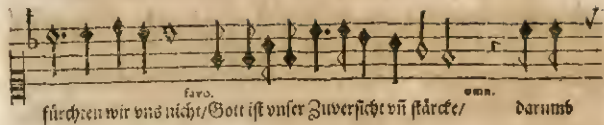 favo. omn.
fürchten wir vns nicht/Gott ist vnser Zuversicht vñ stärcke/ darumb